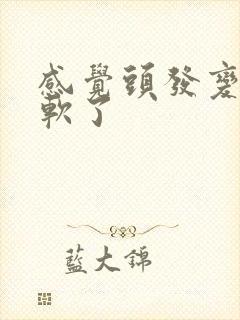 感覺頭發變
軟了
藍大錦